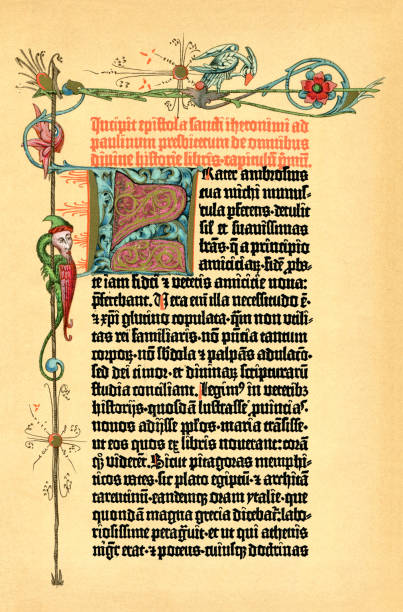 Incipit epistola sancti iheronimi ad
paulinum presbiterum de omnibus
divine historie libris. capitulũ pmũ.
FRater ambrosius
tua michi munus-
cula pferens. detulit
sil' et suavissimas
lrãs. q̃ a principio
amiciciaꝝ. fidē ꝓba-
te iam fidei ⁊ veteris amicicie noua:
pferebant. Vera eni illa necessitudo ē.
⁊ xp̄i glutino copulata. qm non utili-
tas rei familiaris. nō pñcia tantum
corpoꝝ. nō sbdola ⁊ palpãs adulaco.
sed dei timor. et diuinaꝝ scripturarū
studia conciliant. Legim⁹ in veterib⁊
historijs. quosdā lustrasse ꝓuincias.
nouos adijsse pp̄los. maria trāsisse.
ut eos quos ex libris nouerant: corā
qꝫ viderēt. Sicut pitagoras memphi-
ticos vates. sic plato egiptū. ⁊ architā
tarentinū. eandemqꝫ oram ytalie. que
quondā magna grecia dicebat̄: labo-
riosissime peragrauit. et ut qui athenis
mgr̄ erat. ⁊ potens. cuiusqꝫ doctrinas